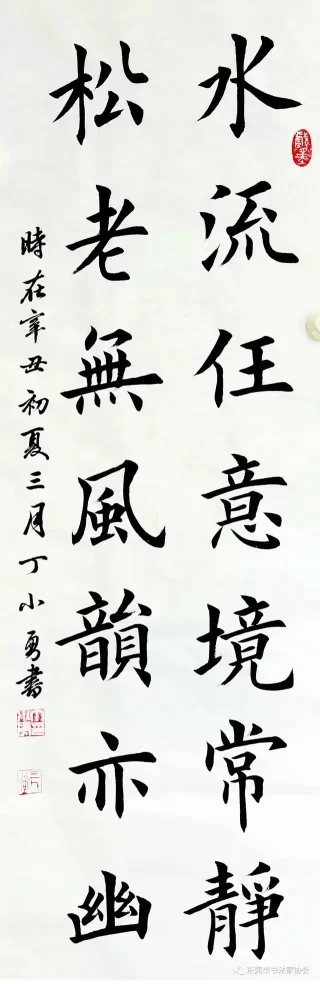 水流任意境常靜
松老無風韻亦幽
時在辛丑初夏三月丁小勇書
东莞市书法家协会